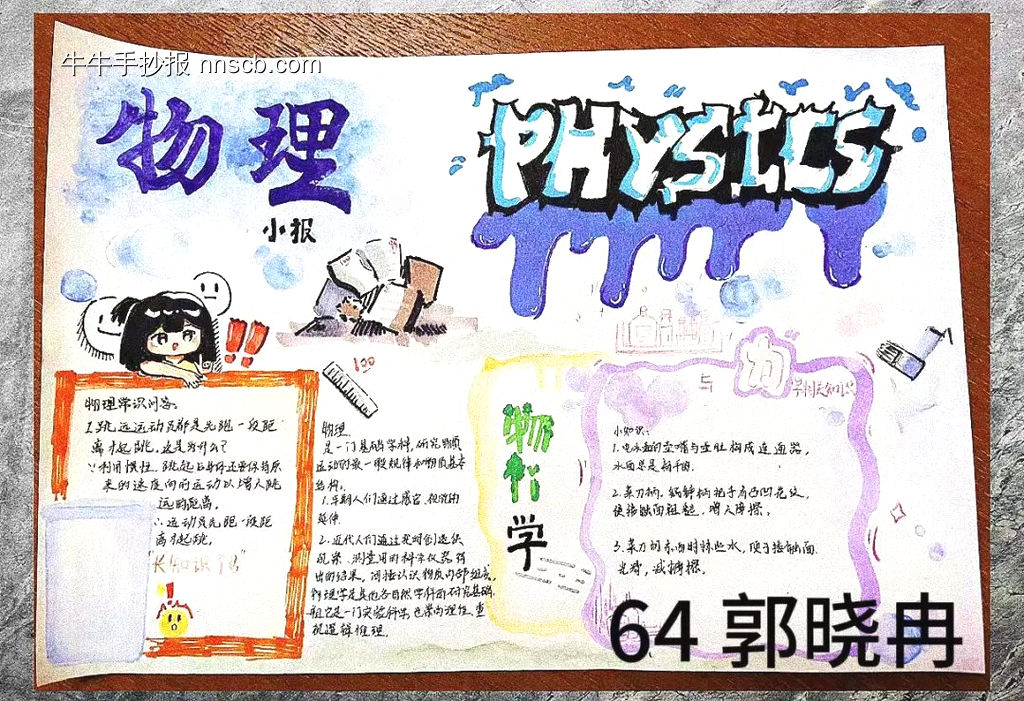 牛牛手抄报 nnscb.com
物理
小报
PHYSICS
100
物理常识问答:
1.跳远运动员都是先跑一段距
离才起跳,这是为什么?
∵利用惯性,跳起时身体还要保持原
来的速度向前运动以增大跳
远的距离,
∴运动员先跑一段距
离才起跳,
"长知识了"
物理
是一门基础学科,研究物质
运动的最一般规律和物质基本
结构。
1.早期人们通过感官视觉的
延伸
2.近代人们通过发明创造供
观察、测量用的科学仪器得
出的结果,间接认识物质内部组成
物理学是其他各自然学科的研究基础
它是一门实验科学,也崇尚理性、重
视逻辑推理.
物
学
与
小知识:
1.电水壶的壶嘴与壶肚构成连通器,
水面总是相平的.
2.菜刀柄、锅铲柄把手有凸凹花纹,
使接触面粗糙,增大摩擦,
3.菜刀切东西时抹些水,便于接触面
光滑,减摩擦。
64 郭晓冉